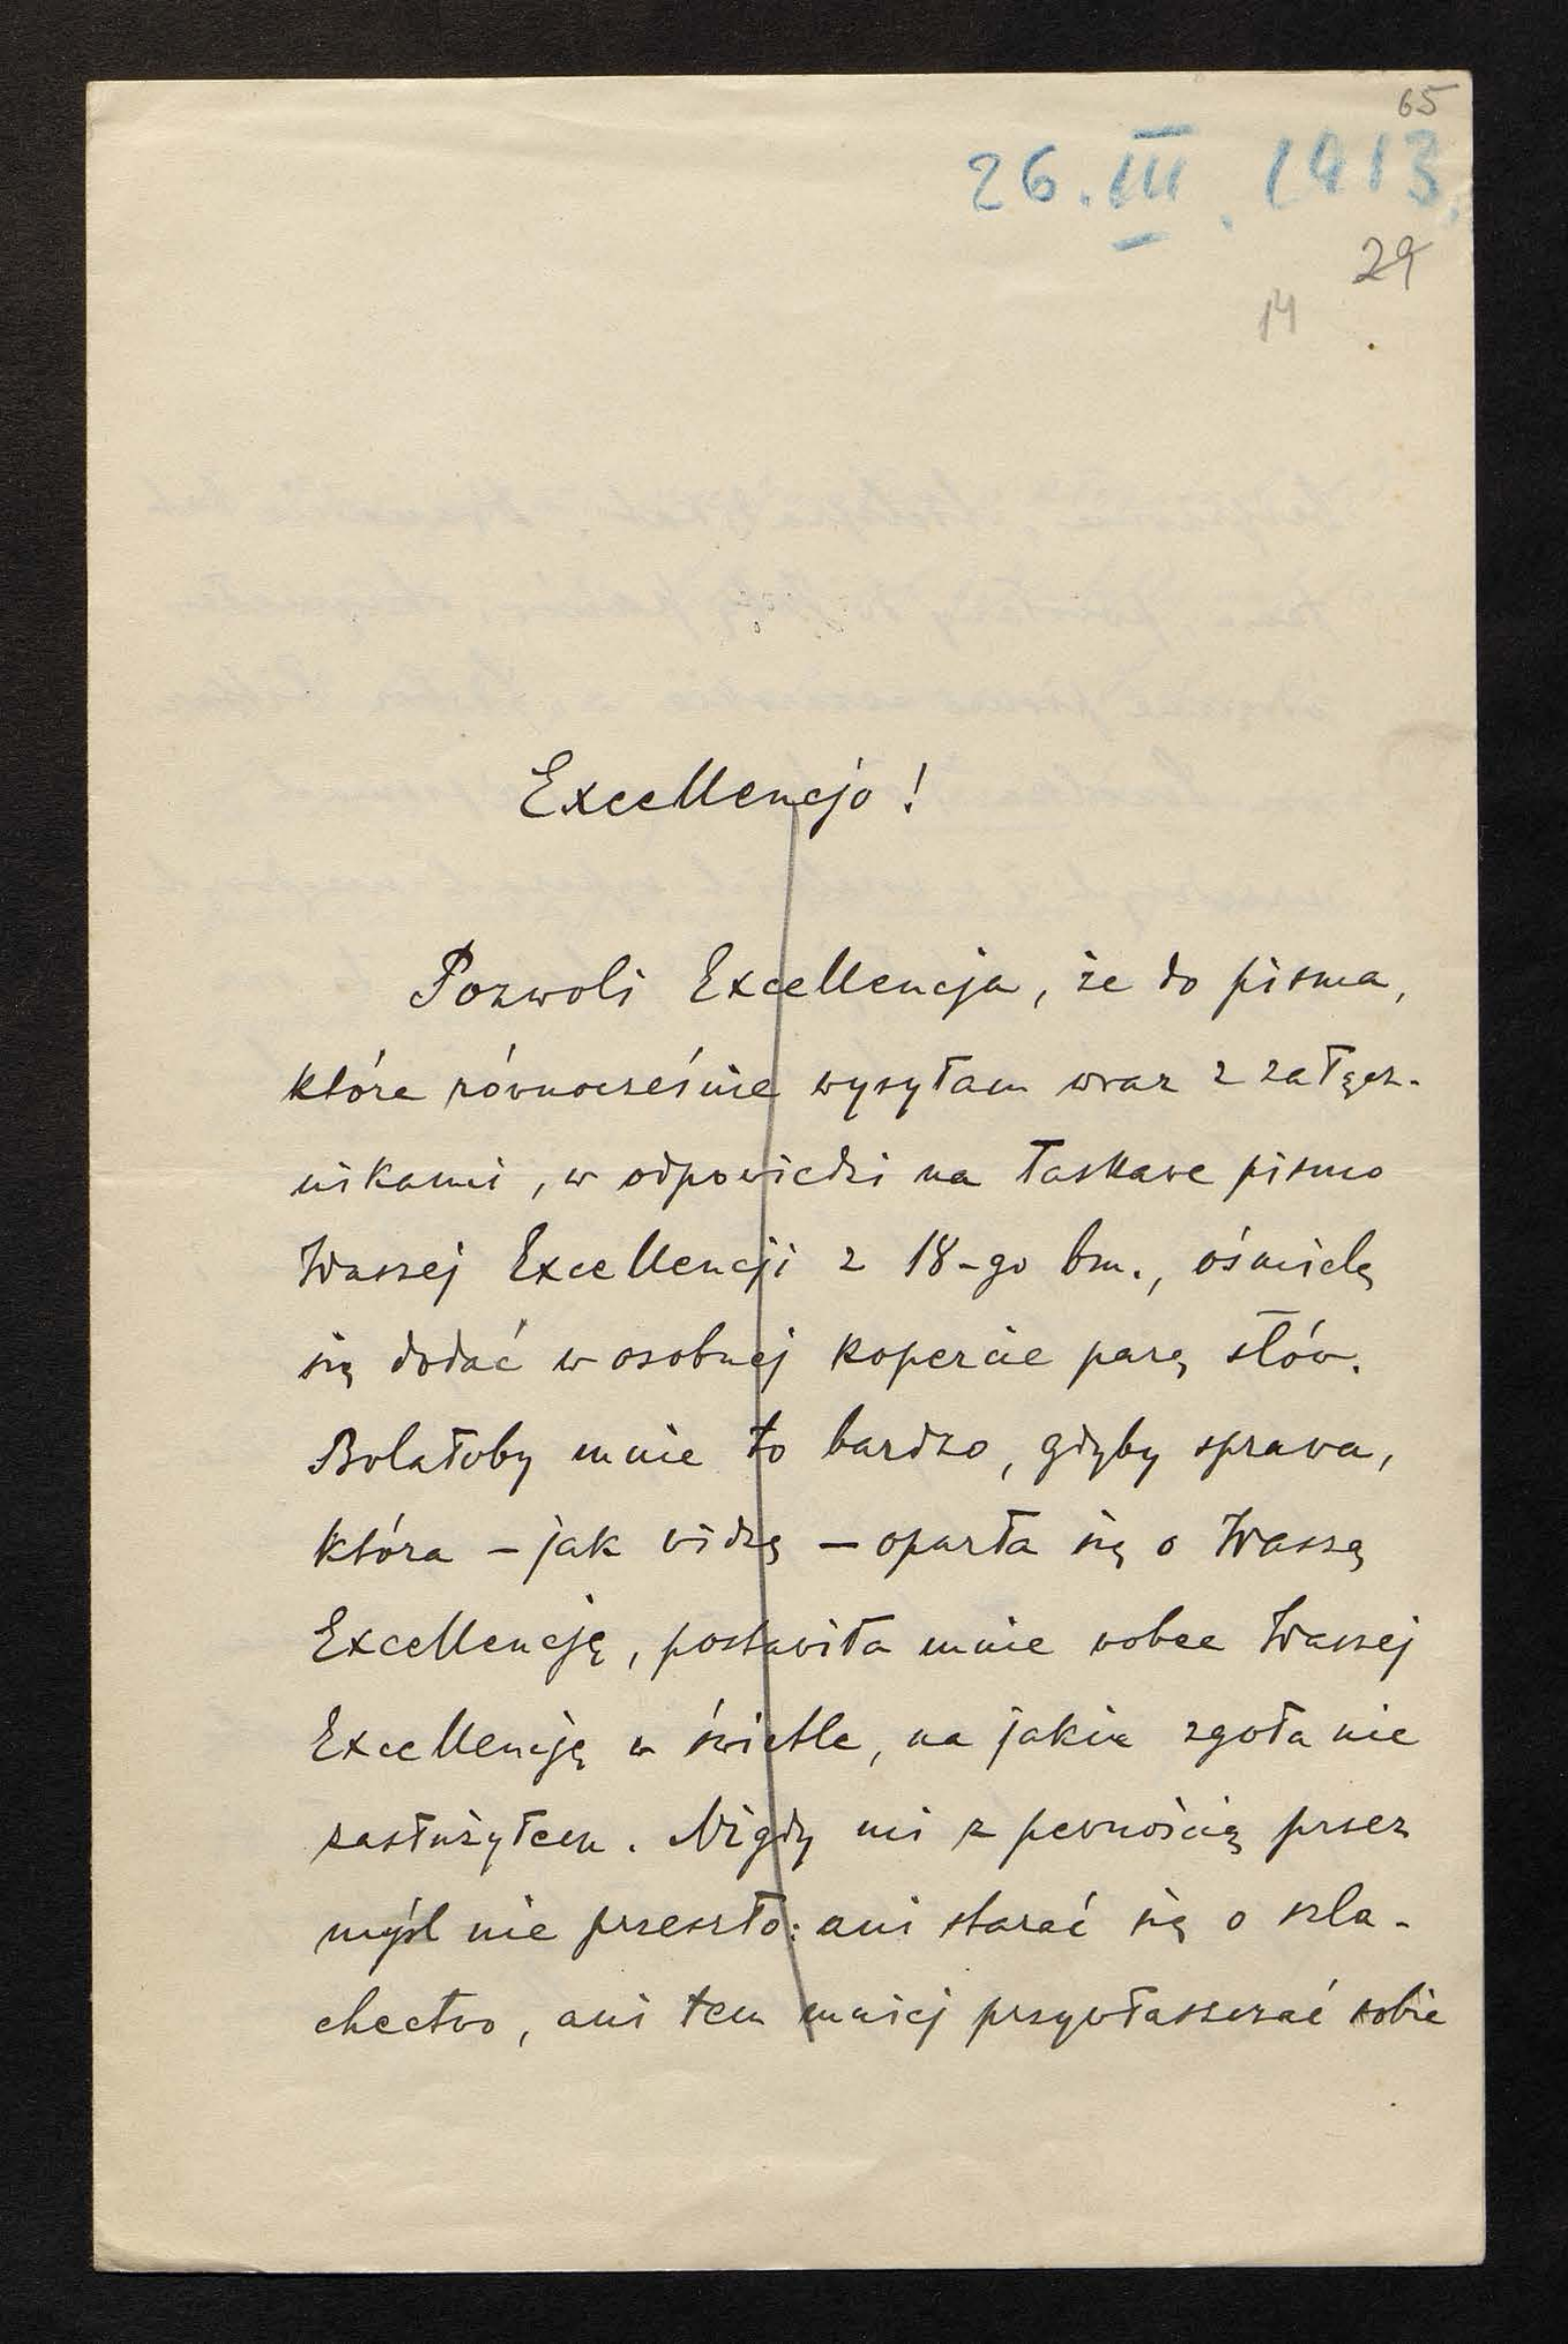 65
26. III. 1913.
29
14
Excellencjo!
Pozwoli Excellencja, że do pisma,
które równocześnie wysyłam wraz z załącz-
nikami, w odpowiedzi na łaskawe pismo
Waszej Excellencji z 18-go bm., ośmielę
się dodać w osobnej kopercie parę słów.
Bolałoby mnie to bardzo, gdyby sprawa,
która – jak widzę – oparła się o Waszą
Excellencję, postawiła mnie wobec Waszej
Excellencję w świetle, na jakie zgoła nie
zasłużyłem. Nigdy mi z pewnością przez
myśl nie przeszło: ani starać się o szla-
chectwo, ani tem mniej przywłaszczać sobie